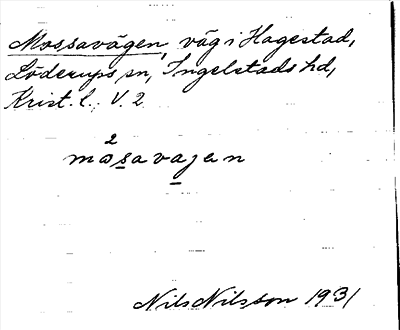 Mossavägen, väg i Hagestad,
Löderups sn, Ingelstads hd,
Krist. l. V. 2
2
mosavajen
Nils Nilsson 1931